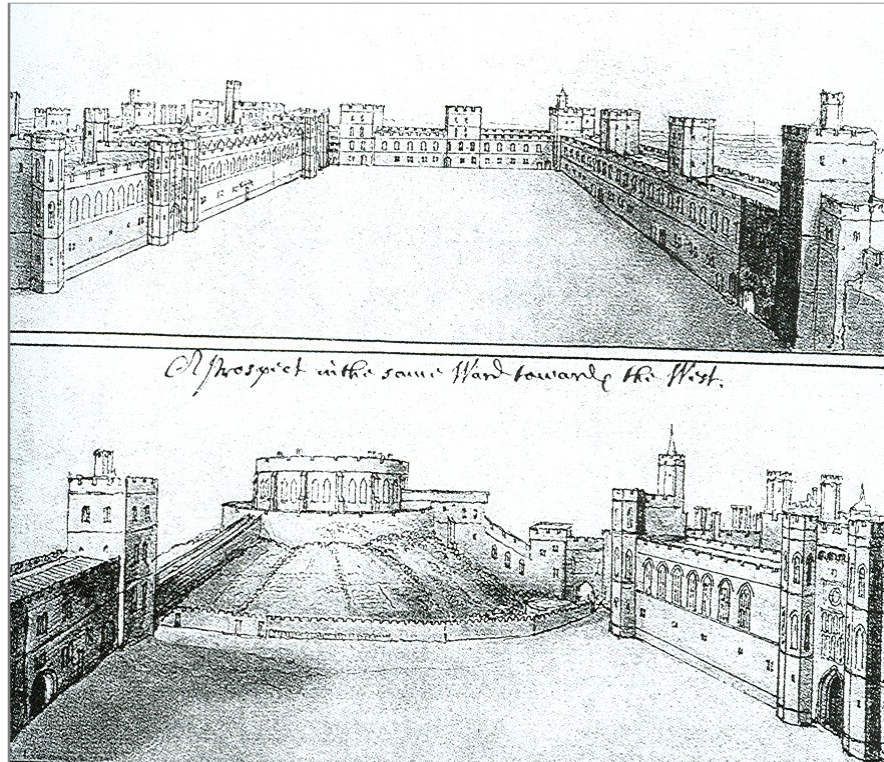 A Prospect in the same Ward towards the West.